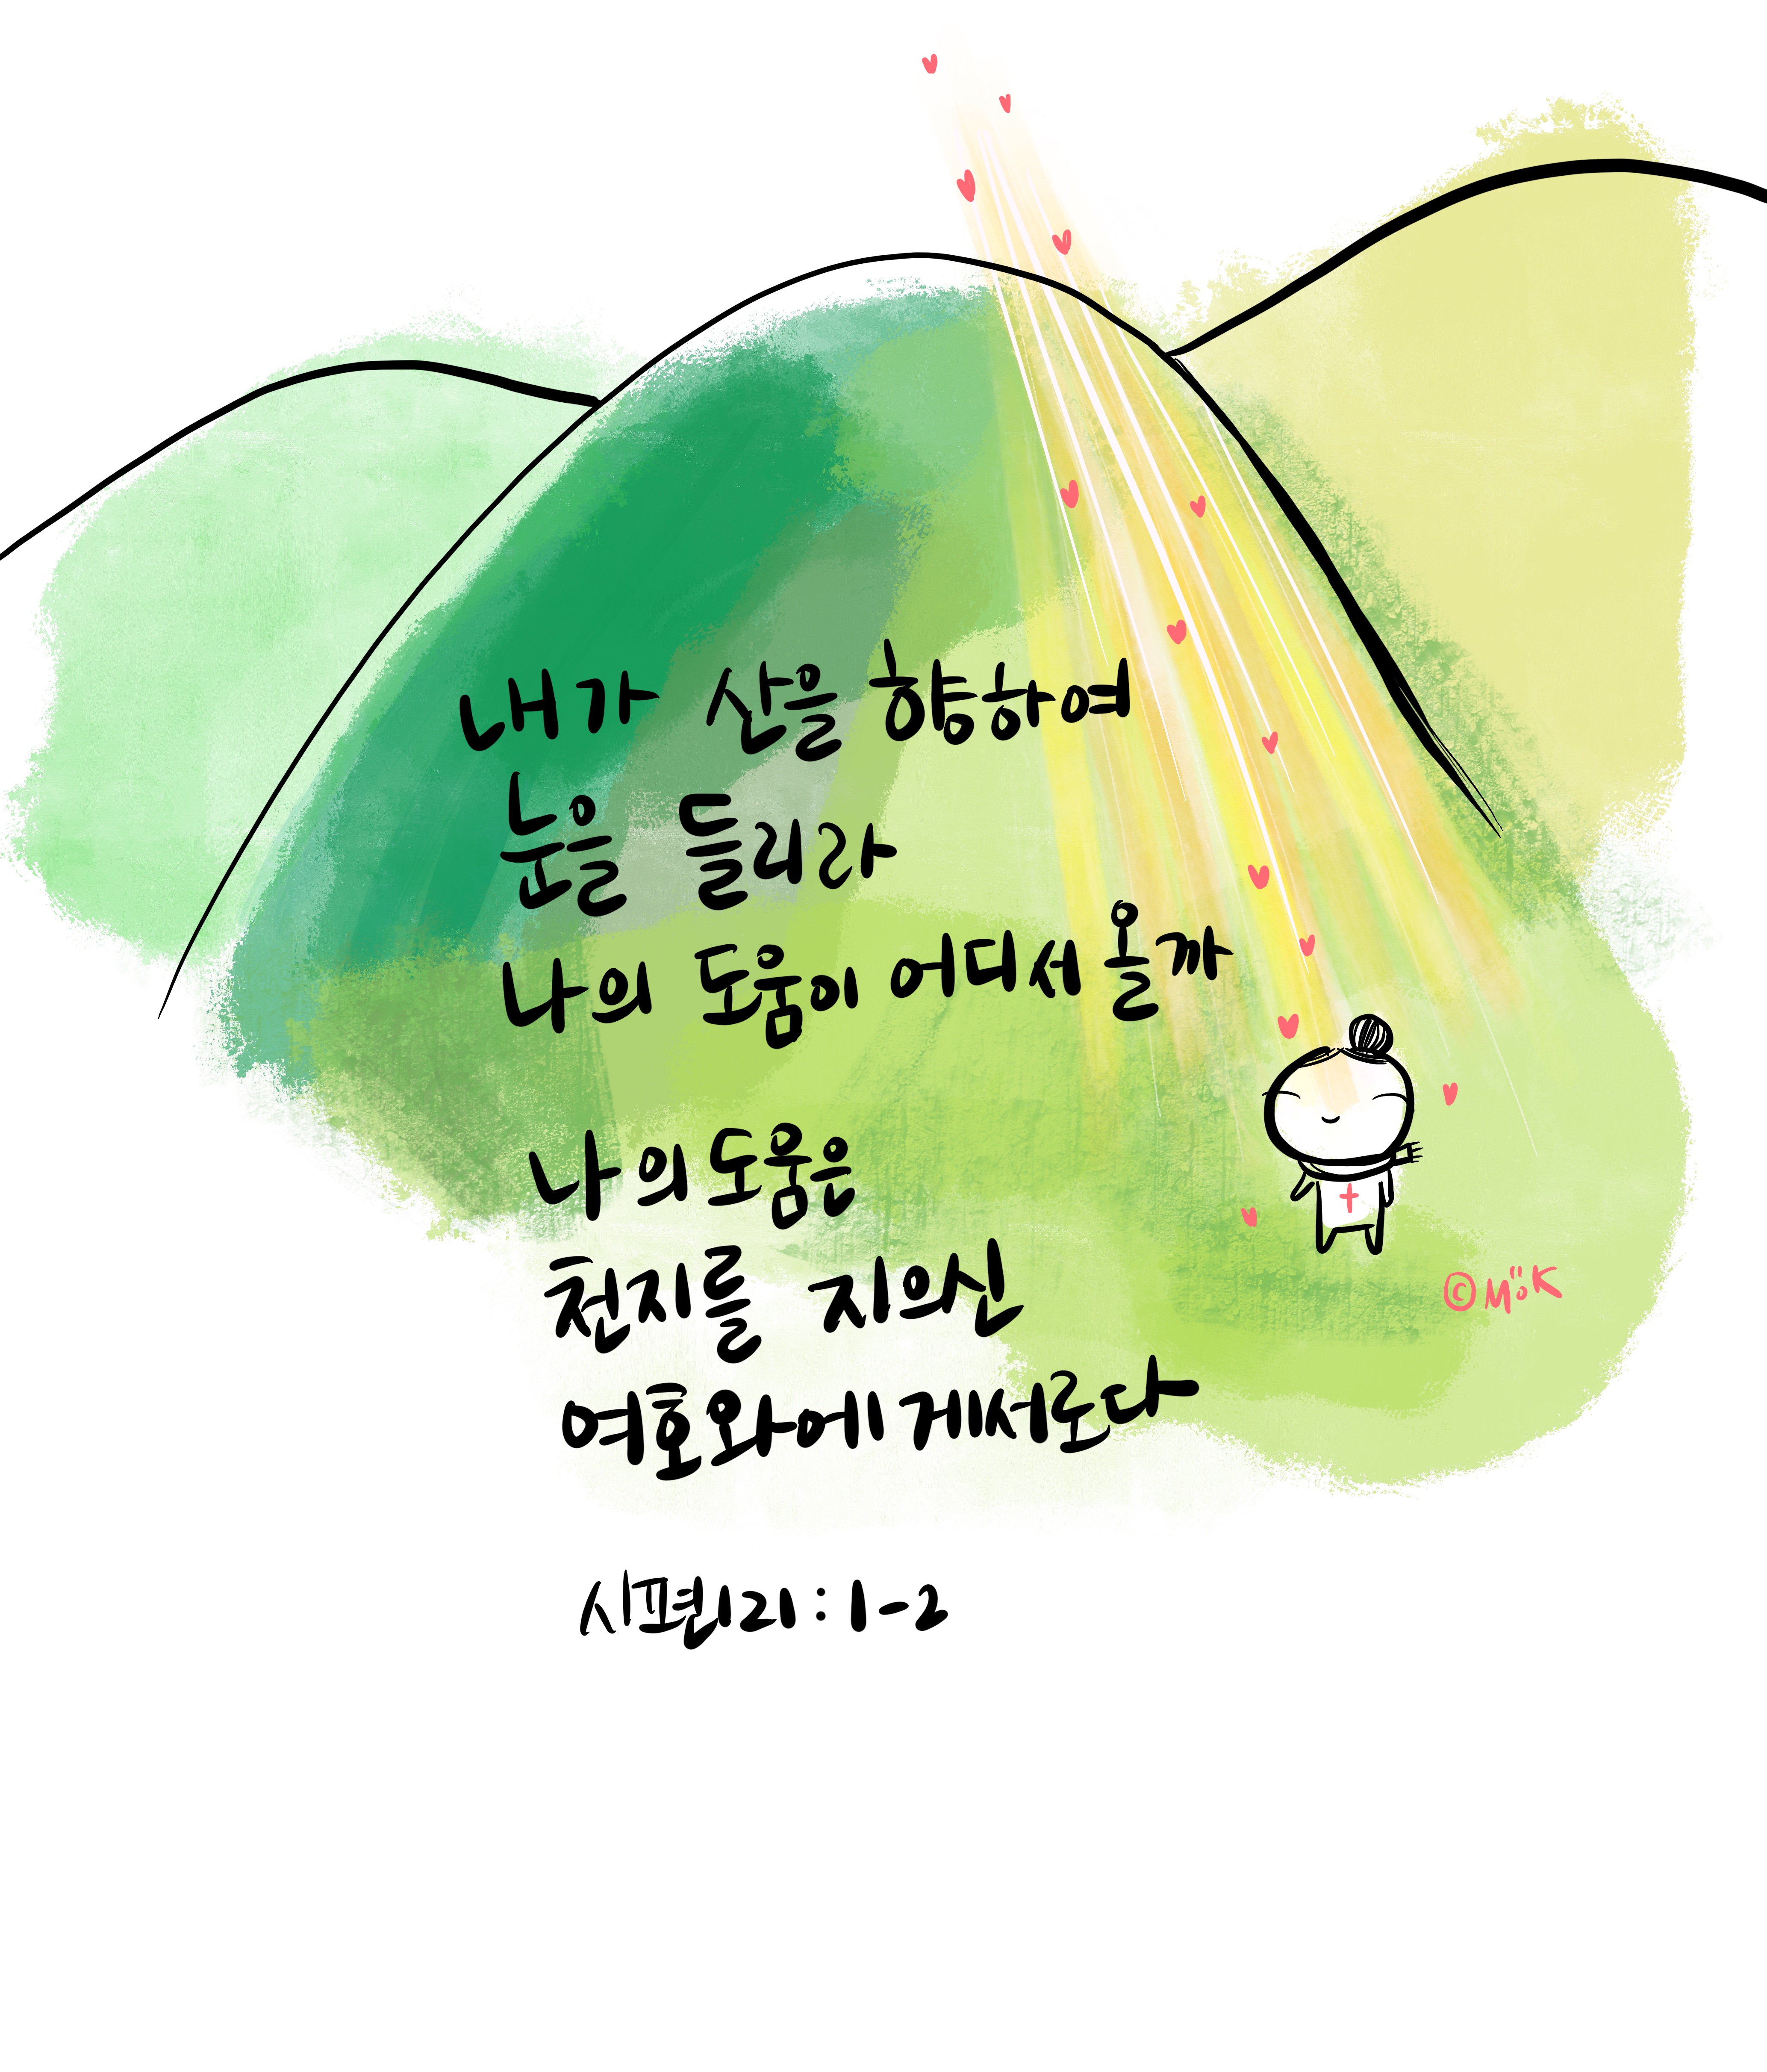 내가 산을 향하여
눈을 들리라
나의 도움이 어디서 올까
나의 도움은
천지를 지의신
여호와에게서로다
시편121:1-2
©MöK